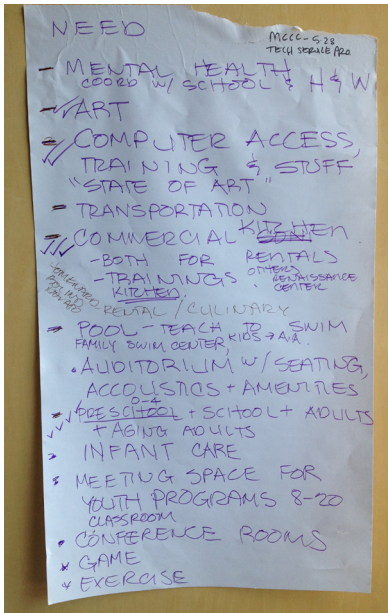 NEED
MCCC - 5.23
TECH SERVICE
- MENTAL HEALTH
COORD W/ SCHOOL & H & W
- ART
- COMPUTER ACCESS,
TRAINING & STUFF
"STATE OF ART"
- TRANSPORTATION
COMMERCIAL KITCHEN
- BOTH FOR RENTALS
- TRAININGS OTHERS RENAISSANCE
KITCHEN CENTER
RENTAL / CULINARY
- POOL - TEACH TO SWIM
FAMILY SWIM CENTER, KIDS →
• AUDITORIUM W/ SEATING,
ACCOUSTICS + AMENITIES
0-4
PRESCHOOL + SCHOOL + ADULTS
+ AGING ADULTS
• INFANT CARE
• MEETING SPACE FOR
YOUTH PROGRAMS 8-20
CLASSROOM
• CONFERENCE ROOMS
* GAME
* EXERCISE